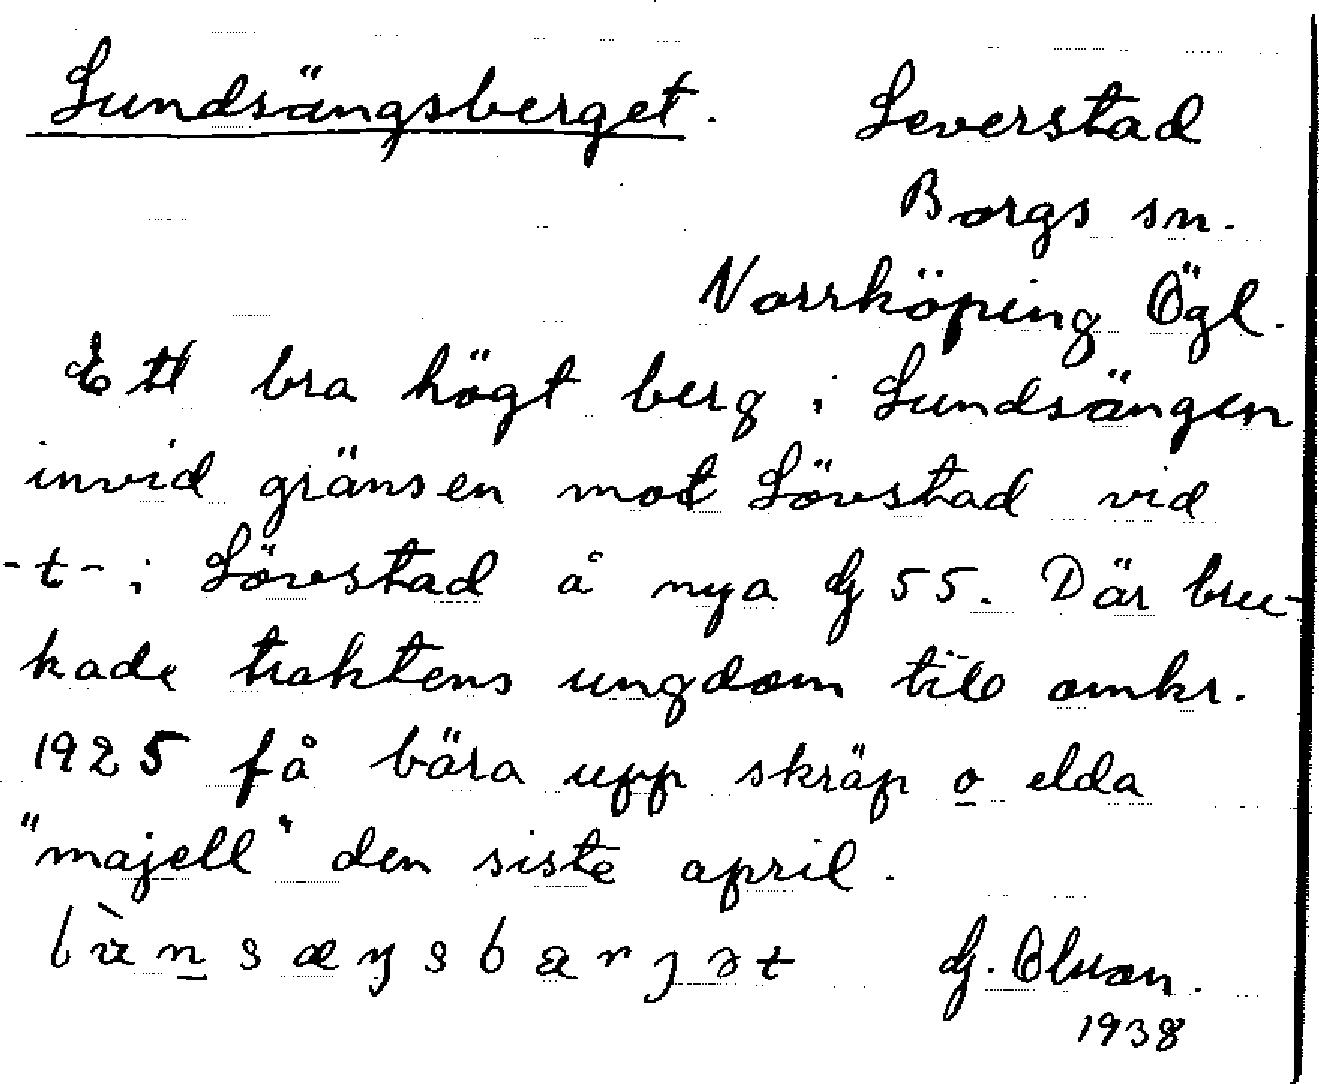 Lundsängsberget. Leverstad
Borgs sn.
Norrköping Ögl.
Ett bra högt berg i Lundsängen
invid gränsen mot Lövstad vid
-t- i Lövstad å nya G 55. Där bru-
kade traktens ungdom till omkr.
1925 få bära upp skräp o elda
"majell" den siste april.
G. Olsson.
1938